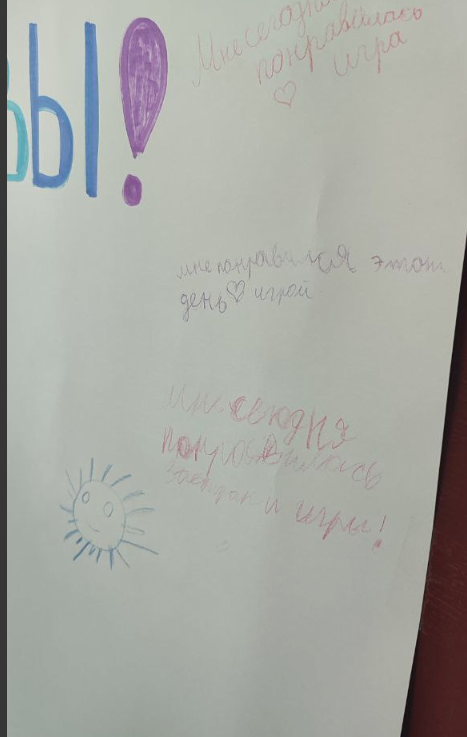 ВЫ!
Мне сегодня
понравилась
игра
мне понравился этот
день игрой
мне сегодня
понравилась
завтрак и игры!